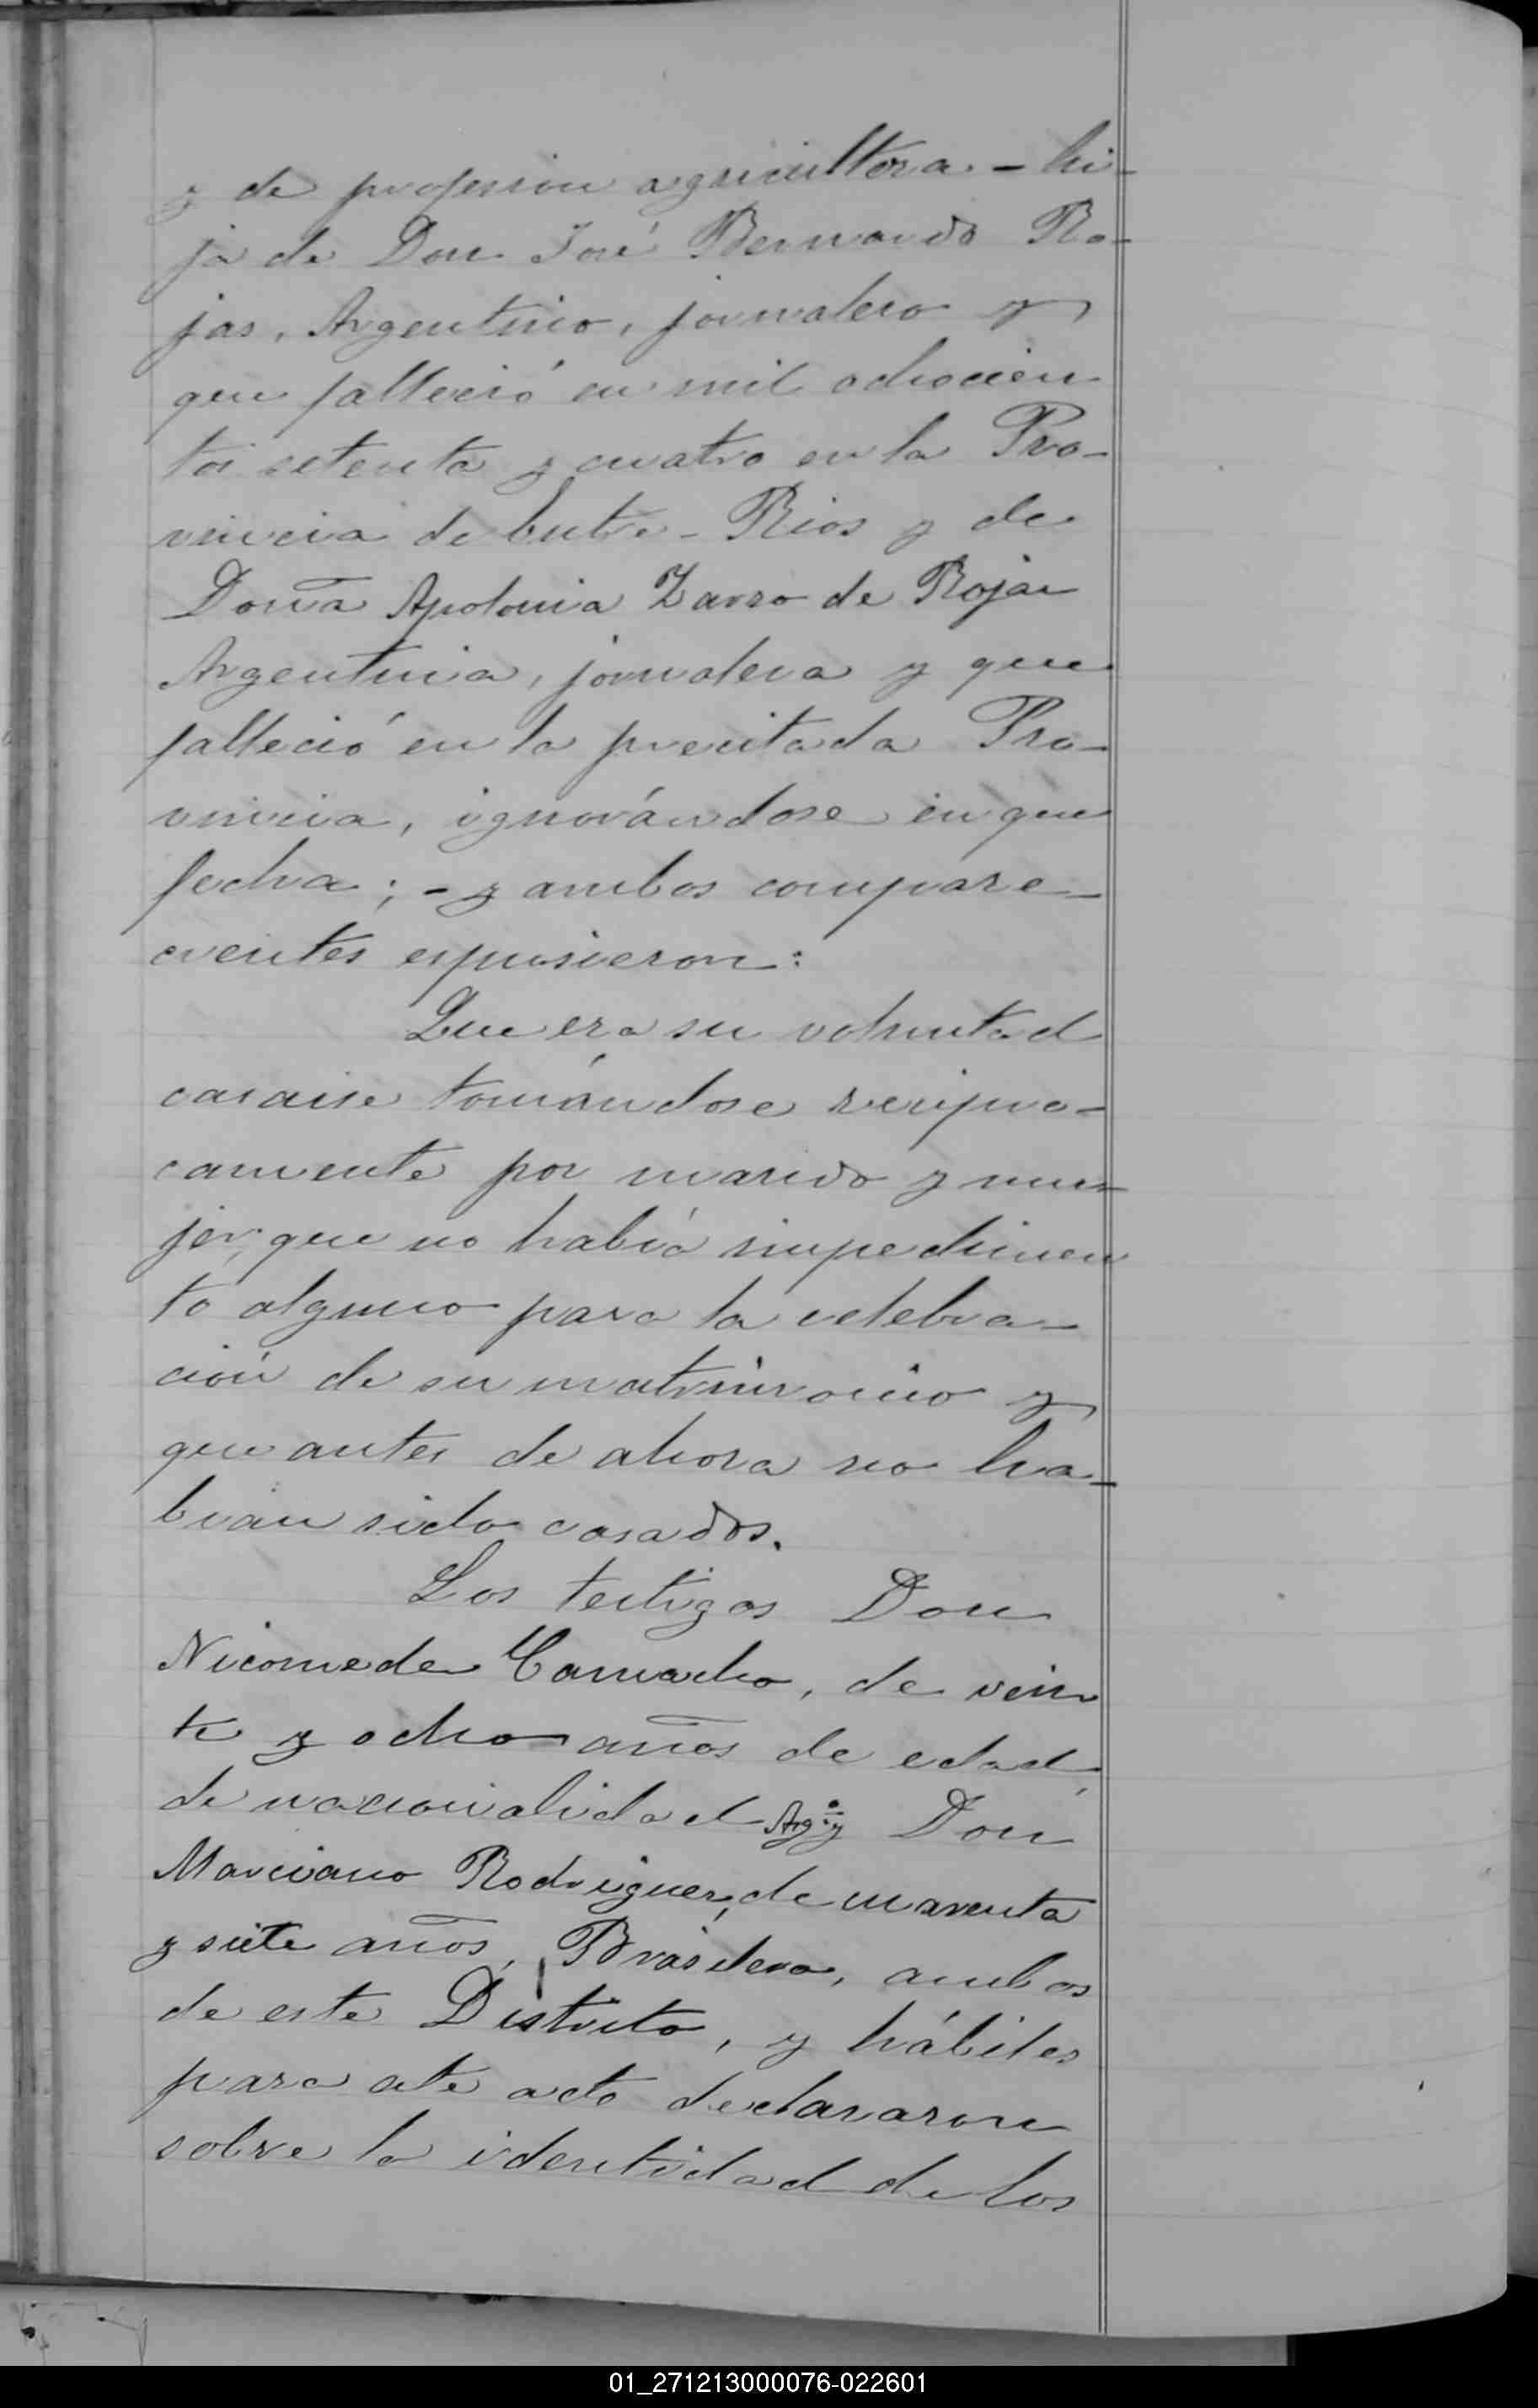 y de profesion agricultora - hi-
ja de Don José Bernardo Ro-
jas, Argentino, jornalero y
que falleció en mil ochocien
tos setenta y cuatro en la Pro-
vincia de Entre-Rios y de
Doña Apolonia Zarzo de Rojas
Argentina, jornalera y que
falleció en la precitada Pro-
vincia, ignorándose en que
fecha; - y ambos compare-
cientes espusieron:
Que era su voluntad
casarse tomándose recipro-
camente por marido y mu-
jer, que no había impedimen
to alguno para la celebra-
ción de su matrimonio y
que antes de ahora no ha-
bian sido casados.
Los testigos Don
Nicomedes Camacho, de vein
te y ocho años de edad,
de nacionalidad Argº y Don
Marciano Rodriguez, de cuarenta
y siete años, Brasilero, ambos
de este Distrito, y hábiles
para este acto declararon
sobre la identidad de los
01_271213000076-022601